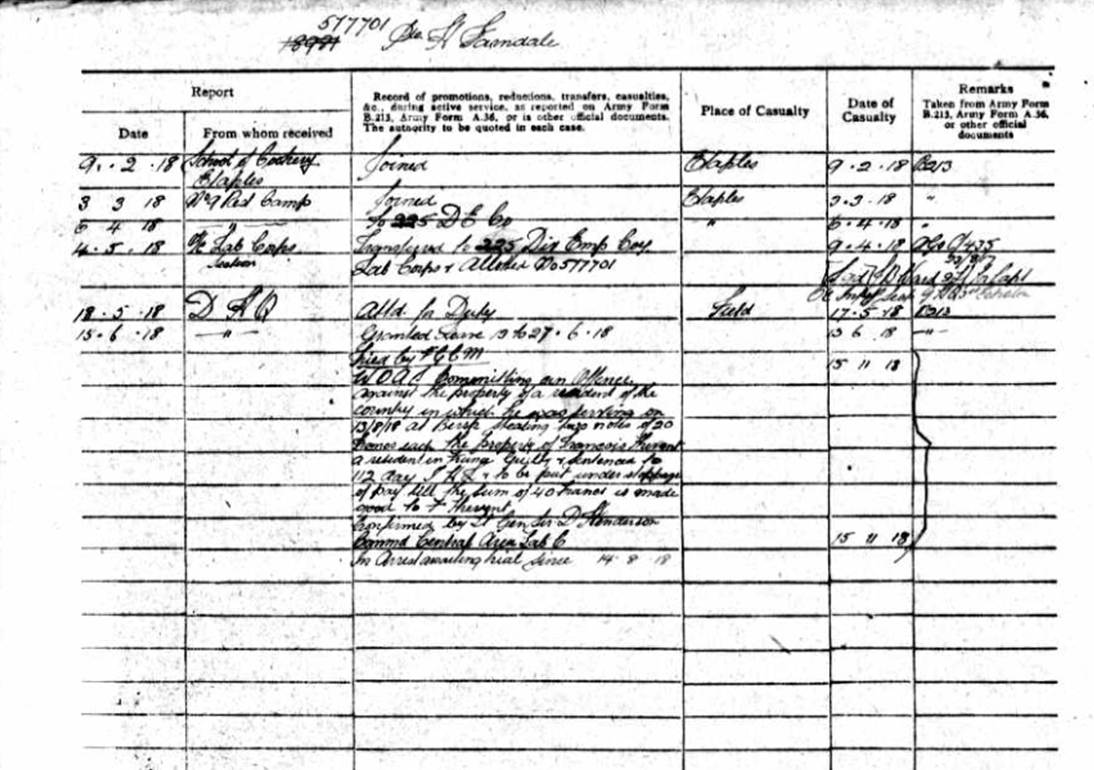 577701
Pte H Farndale
Report
Record of promotions, reductions, transfers, casualties,
&c., during active service, as reported on Army Form
B.213, Army Form A.36, or is other official documents.
The authority to be quoted in each case.
Place of Casualty
Date of
Casualty
Remarks
Taken from Army Form
B.213, Army Form A.36,
or other official
documents
Date
From whom received
9 . 2 . 18 School of Cookery Joined Etaples 9 . 2 . 18 B213
Etaples
3 3 18 Camp Joined Etaples 3 . 3 . 18 "
6 4 18 " To 225 D E Co " 6 . 4 . 18 "
4 . 5 . 18 Lab Corps Transferred to 225 Div Emp Coy 9 . 4 . 18
Section Lab Corps & Allotted No 577701
18 . 5 . 18 D H Q Attd. for Duty Field 17 . 5 . 18 B213
15 . 6 . 18 " Granted Leave 13 to 27 . 6 . 18 13 6 18 "
Tried by F G C M 15 11 18
W.O.A.S. Committing an Offence
against the property of a resident of the
country in which he was serving on
13/8/18 at stealing two notes of 20
francs each the property of Francois Thevent
a resident in Guilty & sentenced to
112 day & to be put under stoppage
of pay till the sum of 40 francs is made
good to F Thevent
Confirmed by Lt Gen Sir D Henderson
Commd Central Area Lab C 15 11 18
In Arrest awaiting trial since 14 . 8 18